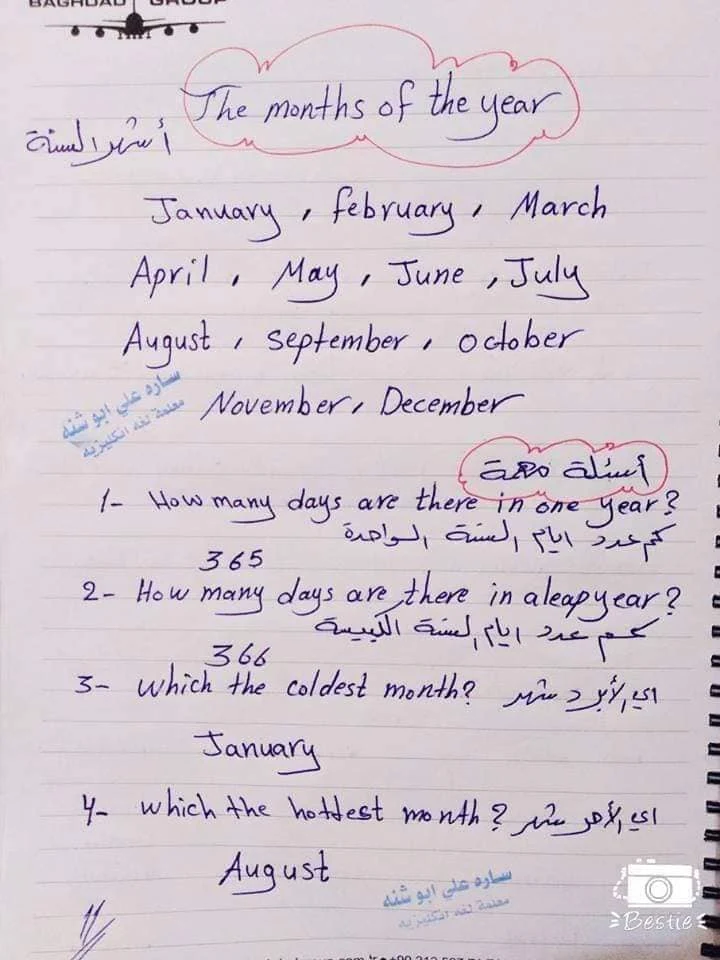 BAGHDAD GROUP
The months of the year
أشهر السنة
January , february , March
April , May , June , July
August , september , october
November, December
ساره علي ابو شنه
معلمة لغه انكليزيه
أسئلة مهمة
1- How many days are there in one year?
كم عدد ايام السنة الواحدة
365
2- How many days are there in a leap year?
كم عدد ايام السنة الكبيسة
366
3- which the coldest month? اي الأبرد شهر
January
4- which the hottest month? اي الأحر شهر
August
ساره علي ابو شنه
معلمة لغه انكليزيه
Bestie